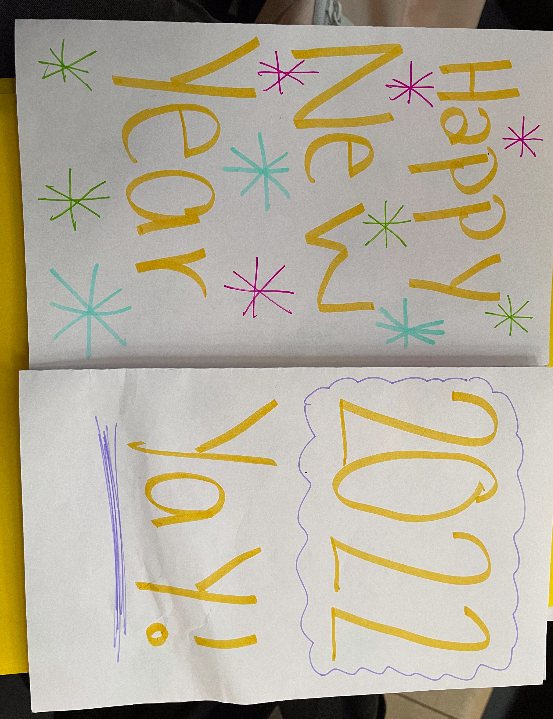 Happy
New
Year
2022
Yay!